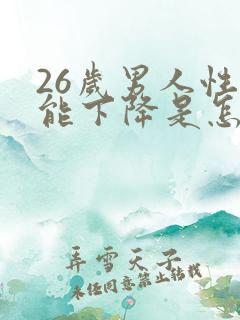 26岁男人性
能下降是怎
弄雪天子
未经同意禁止转载